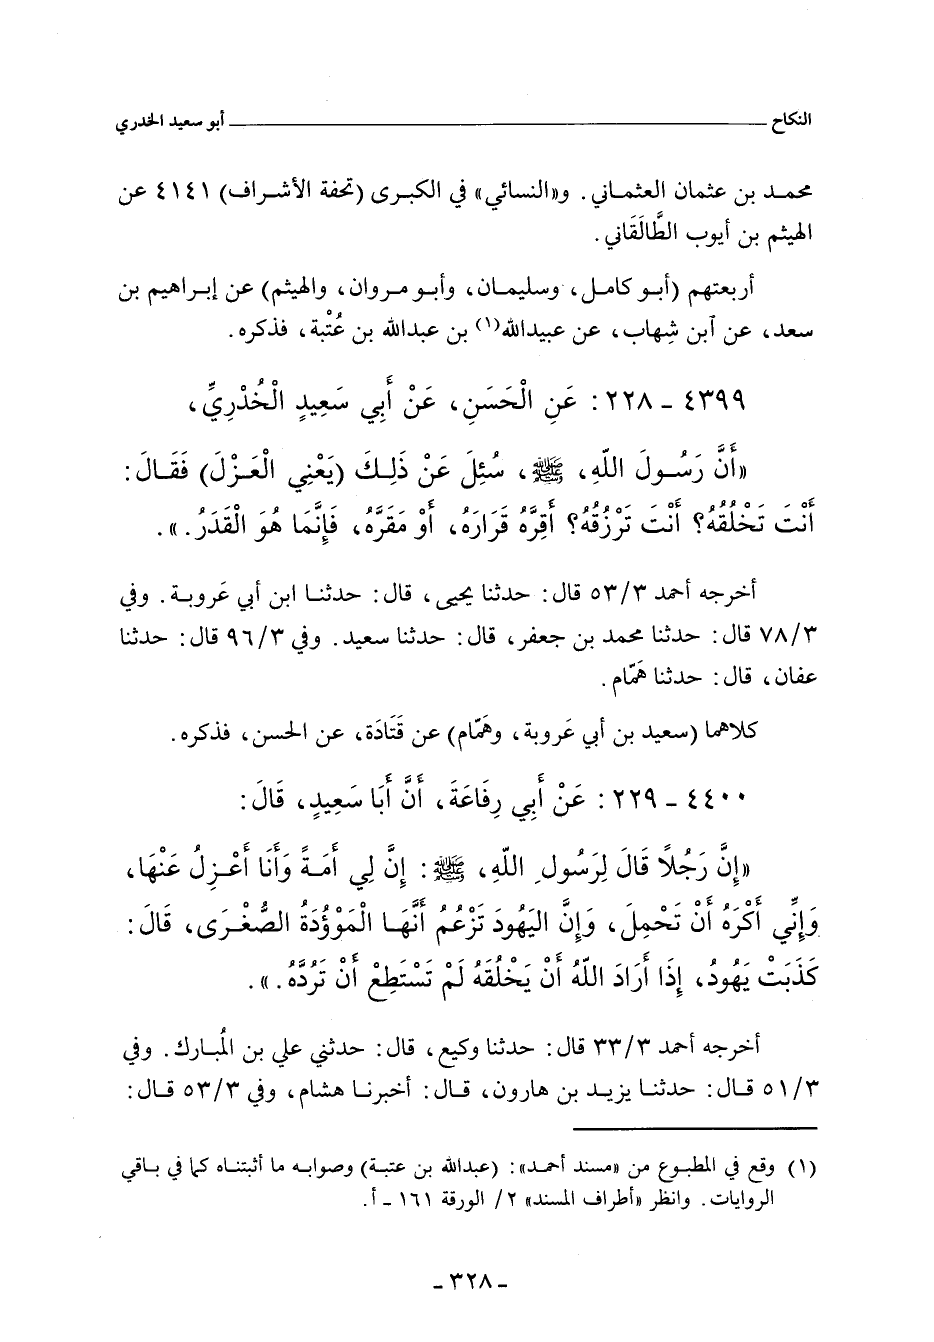 النكاح ــــــــ أبو سعيد الخدري
محمد بن عثمان العثماني. و«النسائي» في الكبرى (تحفة الأشراف) ٤١٤١ عن
الهيثم بن أيوب الطَّالَقَاني.
أربعتهم (أبو كامل، وسليمان، وأبو مروان، والهيثم) عن إبراهيم بن
سعد، عن آبن شِهاب، عن عبيدالله(١) بن عبدالله بن عُتْبة، فذكره.
٤٣٩٩ ـ ٢٢٨: عَنِ الْحَسَنِ، عَنْ أَبِي سَعِيدٍ الْخُدْرِيِّ،
«أَنَّ رَسُولَ اللهِ، ﷺ، سُئِلَ عَنْ ذَلِكَ (يَعْنِي الْعَزْلَ) فَقَالَ:
أَنْتَ تَخْلُقُهُ؟ أَنْتَ تَرْزُقُهُ؟ أَقِرَّهُ قَرَارَهُ، أَوْ مَقَرَّهُ، فَإِنَّمَا هُوَ الْقَدَرُ.».
أخرجه أحمد ٥٣/٣ قال: حدثنا يحيى، قال: حدثنا ابن أبي عَروبة. وفي
٧٨/٣ قال: حدثنا محمد بن جعفر، قال: حدثنا سعيد. وفي ٩٦/٣ قال: حدثنا
عفان، قال: حدثنا هَمّام.
كلاهما (سعيد بن أبي عَروبة، وهَمّام) عن قَتَادَة، عن الحسن، فذكره.
٤٤٠٠ ـ ٢٢٩: عَنْ أَبِي رِفَاعَةَ، أَنَّ أَبَا سَعِيدٍ، قَالَ:
«إِنَّ رَجُلاً قَالَ لِرَسُولِ اللهِ، ﷺ: إِنَّ لِي أَمَةً وَأَنَا أَعْزِلُ عَنْهَا،
وَإِنِّي أَكْرَهُ أَنْ تَحْمِلَ، وَإِنَّ الْيَهُودَ تَزْعُمُ أَنَّهَا الْمَوْؤُدَةُ الصُّغْرَى، قَالَ:
كَذَبَتْ يَهُودُ، إِذَا أَرَادَ اللهُ أَنْ يَخْلُقَهُ لَمْ تَسْتَطِعْ أَنْ تَرُدَّهُ.».
أخرجه أحمد ٣٣/٣ قال: حدثنا وكيع، قال: حدثني علي بن المُبارك. وفي
٥١/٣ قال: حدثنا يزيد بن هارون، قال: أخبرنا هشام، وفي ٥٣/٣ قال:
(١) وقع في المطبوع من «مسند أحمد»: (عبدالله بن عتبة) وصوابه ما أثبتناه كما في باقي
الروايات. وانظر «أطراف المسند» ٢/ الورقة ١٦١ ـ أ.
ـ ٣٢٨ ـ